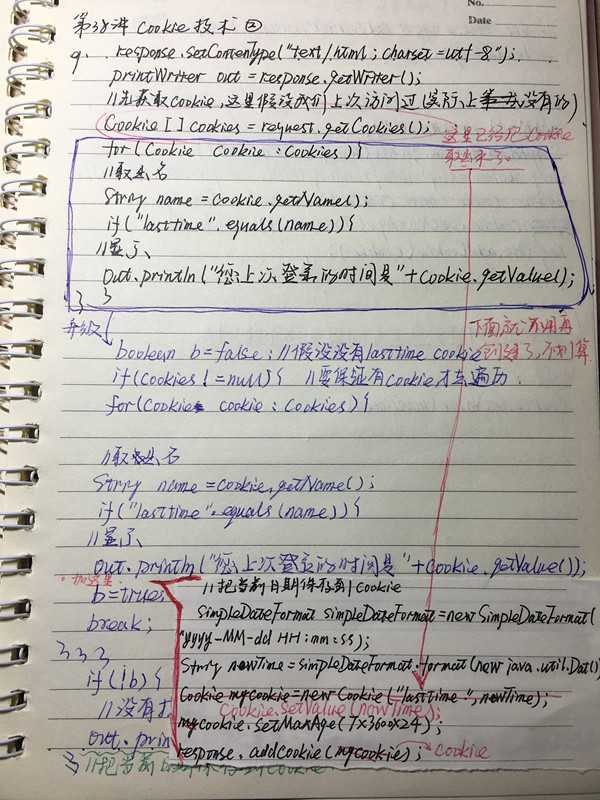 No.
Date
第38讲 Cookie技术②
9. response.setContentType("text/html; charset=utf-8");
printWriter out = response.getWriter();
//先获取cookie,这里假设我们上次访问过(实际上第一次没有的)
Cookie [] cookies = request.getCookies();
这里已经把Cookie
取出来了。
for(Cookie cookie : cookies){
//取出名
String name = cookie.getName();
if("lasttime".equals(name)){
//显示
Out.println("您上次登录的时间是"+cookie.getValue();
} }
升级
下面就不用再
创建了,不划算
boolean b=false; //假设没有lasttime cookie
if(Cookies!=null){ //要保证有cookie才去遍历
for(Cookie cookie : cookies){
//取出名
String name = cookie.getName();
if("lasttime".equals(name)){
//显示
out.println("您上次登录的时间是"+cookie.getValue());
·加这里.
b=true;
break;
} } }
if(!b){
//没有
out.prin
} //把当前日期保存到cookie
//把当前日期保存到Cookie
SimpleDateFormat simpleDateFormat=new SimpleDateFormat(
"yyyy-MM-dd HH:mm:ss);
String nowTime=simpleDateFormat.format(new java.util.Dat()
Cookie mycookie=new Cookie("lasttime", nowTime);
Cookie.setValue(nowTime);
mycookie.setMaxAge(7×3600×24);
response.addCookie(mycookie); cookie